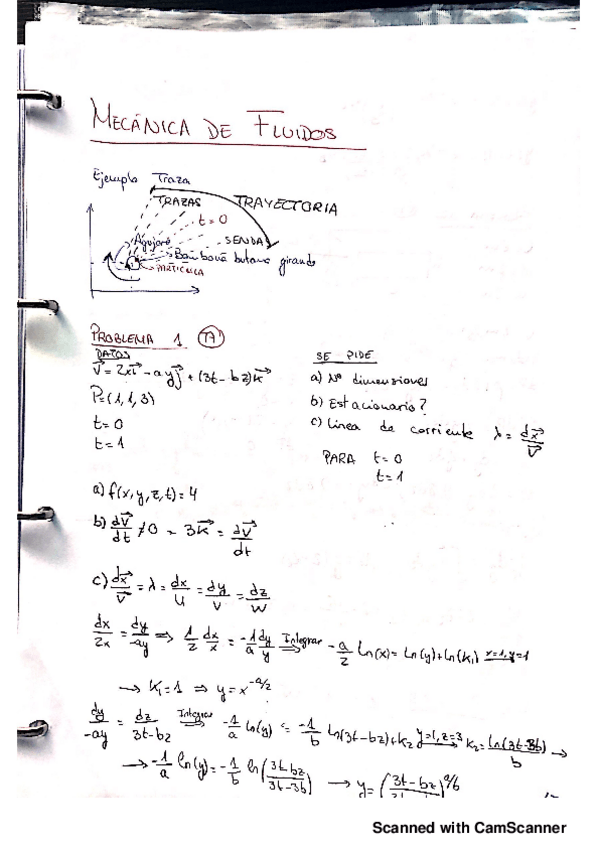 MECÁNICA DE FLUIDOS
Ejemplo Traza
TRAZAS TRAYECTORIA
t=0
Agujero SENDA
Bombona butano girando
PARTICULA
PROBLEMA 1 (T1)
DATOS
V⃗ = 2xi⃗ - ayj⃗ + (3t-bz)k⃗
P=(1,1,3)
t=0
t=1
SE PIDE
a) Nº dimensiones
b) Estacionario?
c) Línea de corriente λ = dx⃗/V⃗
PARA t=0
t=1
a) f(x,y,z,t)=4
b) dV⃗/dt ≠ 0 ~ 3k⃗ = dV⃗/dt
c) dx⃗/V⃗ = λ = dx/u = dy/v = dz/w
dx/2x = dy/-ay ⇒ 1/2 dx/x = -1/a dy/y Integrar ⇒ -a/2 ln(x) = ln(y)+ln(k₁) x=1, y=1
→ k₁=1 ⇒ y = x^(-a/2)
dy/-ay = dz/3t-bz Integrar ⇒ -1/a ln(y) = -1/b ln(3t-bz)+k₂ y=1, z=3 ⇒ k₂ = ln(3t-3b)/b →
→ -1/a ln(y) = -1/b ln(3t-bz/3t-3b) → y = (3t-bz/)^(a/b)
Scanned with CamScanner